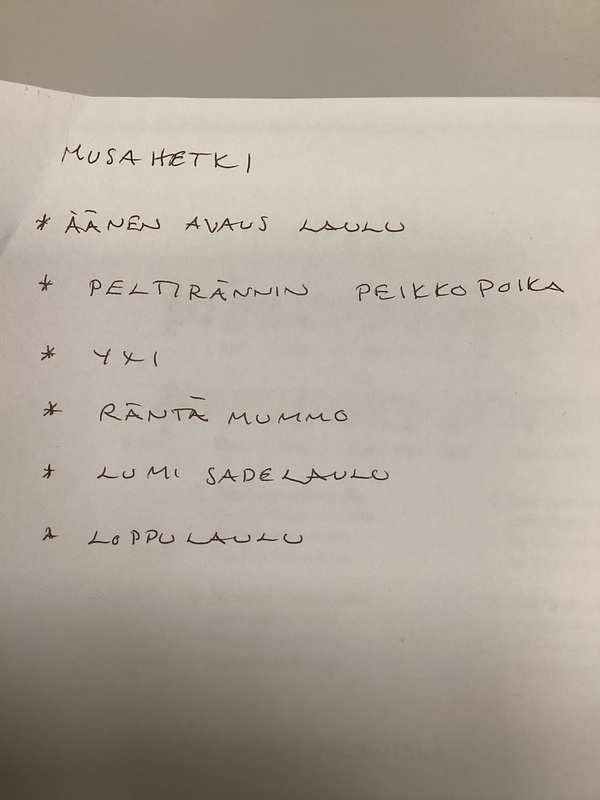 MUSAHETKI
* ÄÄNEN AVAUS LAULU
* PELTIRÄNNIN PEIKKOPOIKA
* YXI
* RÄNTÄ MUMMO
* LUMI SADELAULU
* LOPPULAULU